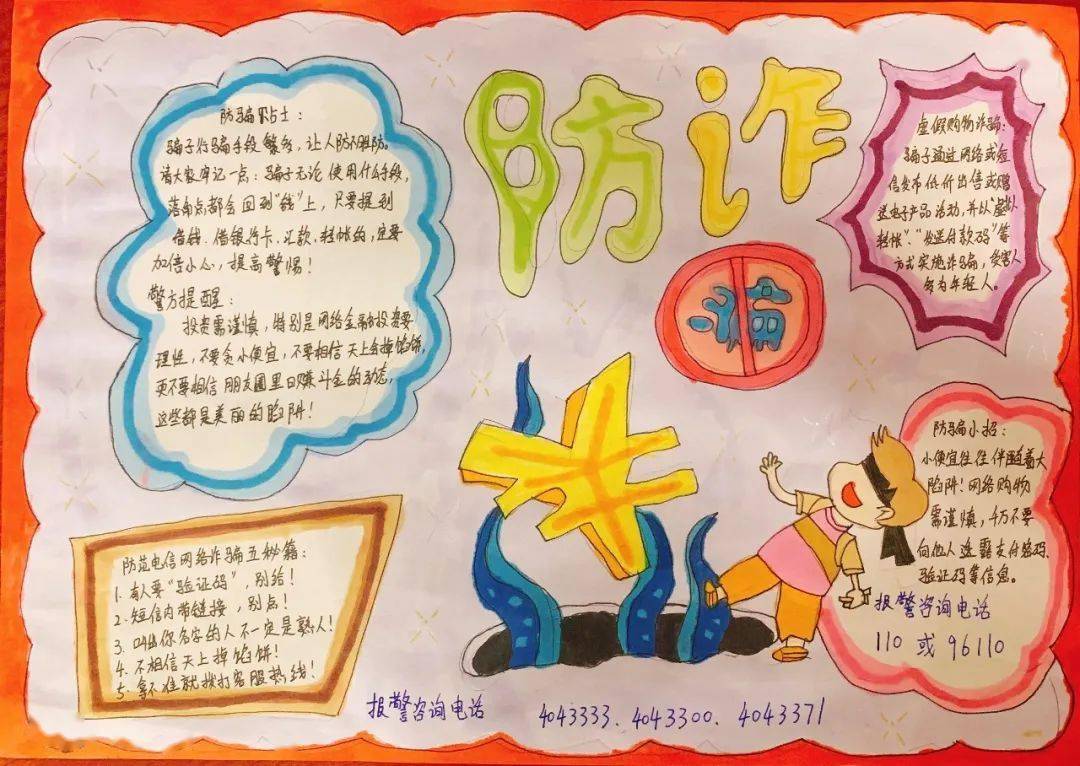 防诈
骗
防骗小贴士：
骗子行骗手段繁多，让人防不胜防。
请大家牢记一点：骗子无论使用什么手段，
落角点都会回到“钱”上，只要提到
借钱、借银行卡、汇款、转帐的，定要
加倍小心，提高警惕！
警方提醒：
投资需谨慎，特别是网络金融投资要
理性，不要贪小便宜，不要相信天上会掉馅饼，
更不要相信朋友圈里日赚斗金的动态，
这些都是美丽的陷阱！
虚假购物诈骗：
骗子通过网络或短
信发布低价出售或赠
送电子产品活动，并以“虚拟
转帐”、“发送付款码”等
方式实施诈骗，受害人
多为年轻人。
防骗小招：
小便宜往往伴随着大
陷阱！网络购物
需谨慎，千万不要
向他人透露支付密码、
验证码等信息。
报警咨询电话
110 或 96110
防范电信网络诈骗五秘籍：
1. 有人要“验证码”，别给！
2. 短信内带链接，别点！
3. 叫出你名字的人不一定是熟人！
4. 不相信天上掉馅饼！
5. 拿不准就拨打客服热线！
报警咨询电话 4043333、4043300、4043371